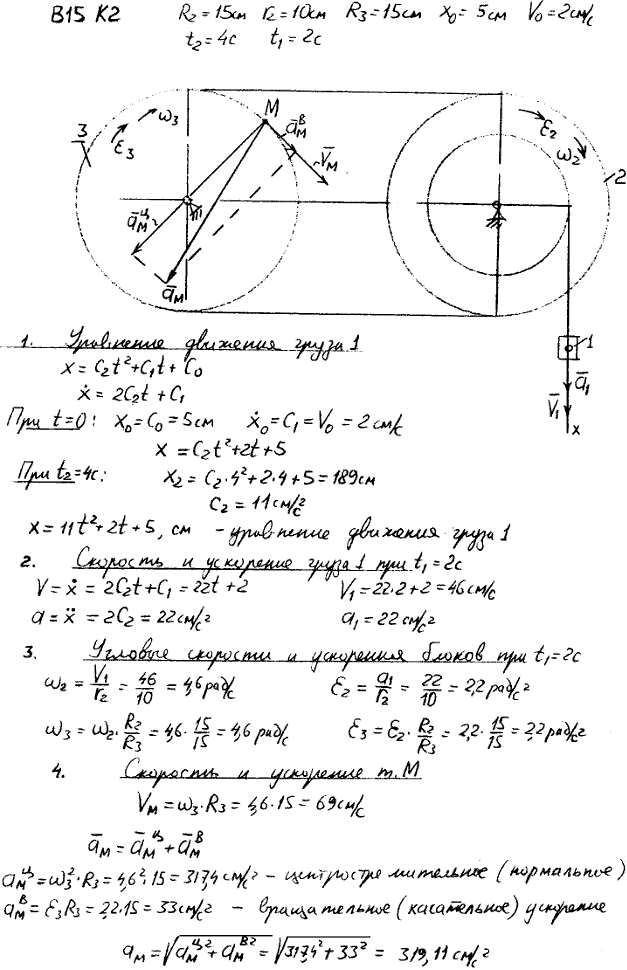 В15 К2 R₂=15см r₂=10см R₃=15см x₀=5см V₀=2см/с
t₂=4с t₁=2с
M
3
ω₃
ε₃
a̅ᴹᴮ
V̅ₘ
ε₂
ω₂
2
a̅ₘᶣ
a̅ₘ
1
a̅₁
V̅₁
x
1. Уравнение движения груза 1
x = C₂t²+C₁t+C₀
ẋ = 2C₂t+C₁
При t=0: x₀=C₀=5см ẋ₀=C₁=V₀=2см/с
x=C₂t²+2t+5
При t₂=4с: x₂=C₂·4²+2·4+5=189см
C₂=11см/с²
x=11t²+2t+5, см - уравнение движения груза 1
2. Скорость и ускорение груза 1 при t₁=2с
V=ẋ=2C₂t+C₁=22t+2 V₁=22·2+2=46см/с
a=ẍ=2C₂=22см/с² a₁=22см/с²
3. Угловые скорости и ускорения блоков при t₁=2с
ω₂=V₁/r₂=46/10=4,6рад/с ε₂=a₁/r₂=22/10=2,2рад/с²
ω₃=ω₂·R₂/R₃=4,6·15/15=4,6рад/с ε₃=ε₂·R₂/R₃=2,2·15/15=2,2рад/с²
4. Скорость и ускорение т.М
Vₘ=ω₃·R₃=4,6·15=69см/с
a̅ₘ=a̅ₘᶣ+a̅ₘᴮ
aₘᶣ=ω₃²·R₃=4,6²·15=317,4см/с² - центростремительное (нормальное)
aₘᴮ=ε₃R₃=2,2·15=33см/с² - вращательное (касательное) ускорение
aₘ=√(aₘᶣ²+aₘᴮ²)=√(317,4²+33²)=319,11см/с²